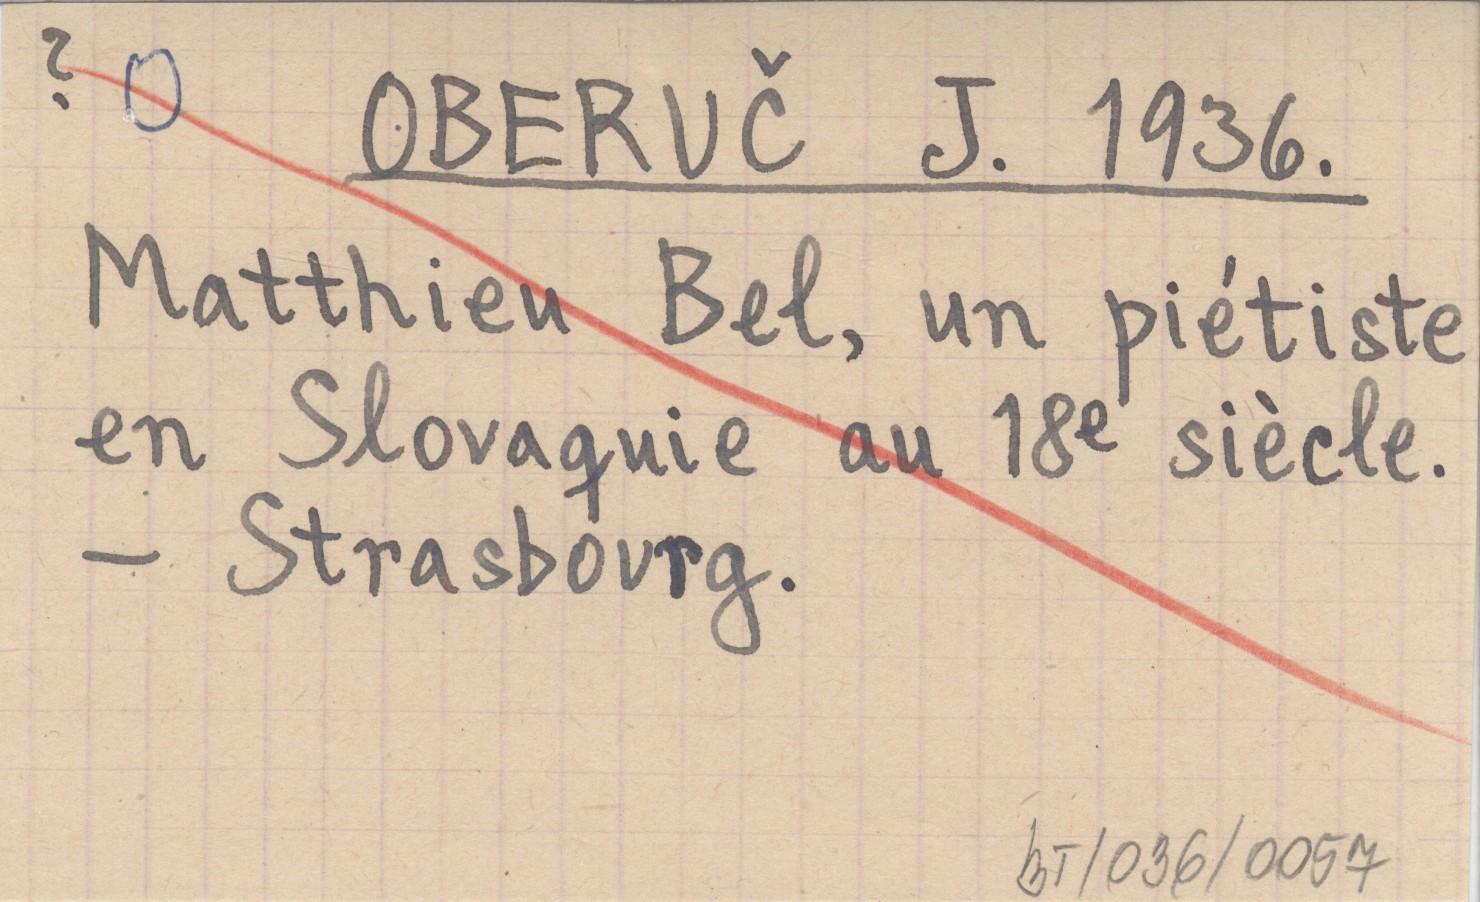 ? O OBERUČ J. 1936.
Matthieu Bel, un piétiste
en Slovaquie au 18e siècle.
– Strasbourg.
BT/036/0057